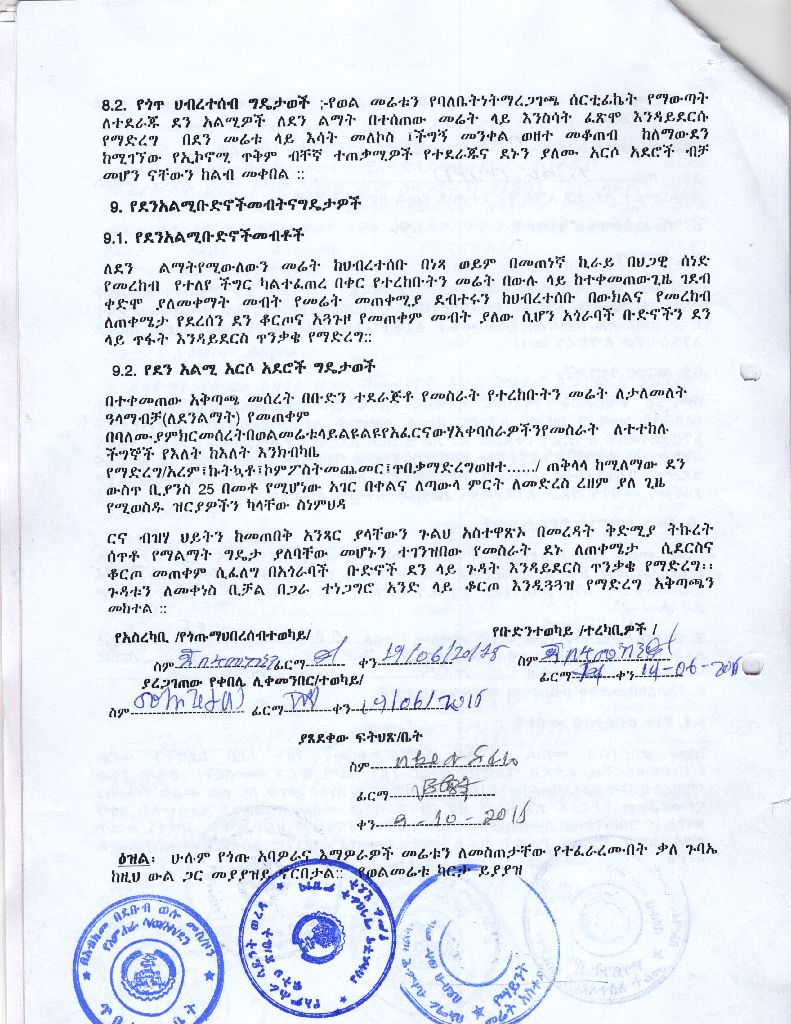 8.2. የጎጥ ህብረተሰብ ግዴታወች ;-የወል መሬቱን የባለቤትነትማረጋገጫ ሰርቲፊኬት የማውጣት
ለተደራጁ ደን አልሚዎች ለደን ልማት በተሰጠው መሬት ላይ እንስሳት ፈጽሞ እንዳይደርሱ
የማድረግ በደን መሬቱ ላይ እሳት መለኮስ ፣ችግኝ መንቀል ወዘተ መቆጠብ ከለማውደን
ከሚገኘው የኢኮኖሚ ጥቅም ብቸኛ ተጠቃሚዎች የተደራጁና ደኑን ያለሙ አርሶ አደሮች ብቻ
መሆን ናቸውን ከልብ መቀበል ::
9. የደንአልሚቡድኖችመብትናግዴታዎች
9.1. የደንአልሚቡድኖችመብቶች
ለደን ልማትየሚውለውን መሬት ከህብረተሰቡ በነጻ ወይም በመጠነኛ ኪራይ በህጋዊ ሰነድ
የመረከብ የተለየ ችግር ካልተፈጠረ በቀር የተረከቡትን መሬት በውሉ ላይ ከተቀመጠውጊዜ ገደብ
ቀድሞ ያለመቀማት መብት የመሬት መጠቀሚያ ደብተሩን ከህብረተሰቡ በውክልና የመረከብ
ለጠቀሜታ የደረሰን ደን ቆርጦና አጓጉዞ የመጠቀም መብት ያለው ሲሆን አጎራባች ቡድኖችን ደን
ላይ ጥፋት እንዳይደርስ ጥንቃቄ የማድረግ::
9.2. የደን አልሚ አርሶ አደሮች ግዴታወች
በተቀመጠው አቅጣጫ መሰረት በቡድን ተደራጅቶ የመስራት የተረከቡትን መሬት ለታለመለት
ዓላማብቻ(ለደንልማት) የመጠቀም
በባለሙያምክርመሰረትበወልመሬቱላይልዩልዩየአፈርናውሃእቀባስራዎችንየመስራት ለተተከሉ
ችግኞች የእለት ከእለት እንክብካቤ
የማድረግ/አረም፣ኩትኳቶ፣ኮምፖስትመጨመር፣ጥበቃማድረግወዘተ....../ ጠቅላላ ከሚለማው ደን
ውስጥ ቢያንስ 25 በመቶ የሚሆነው አገር በቀልና ለጣውላ ምርት ለመድረስ ረዘም ያለ ጊዜ
የሚወስዱ ዝርያዎችን ካላቸው ስነምህዳ
ርና ብዝሃ ህይትን ከመጠበቅ አንጻር ያላቸውን ጉልህ አስተዋጽኦ በመረዳት ቅድሚያ ትኩረት
ሰጥቶ የማልማት ግዴታ ያለባቸው መሆኑን ተገንዝበው የመስራት ደኑ ለጠቀሜታ ሲደርስና
ቆርጦ መጠቀም ሲፈለግ በአጎራባች ቡድኖች ደን ላይ ጉዳት እንዳይደርስ ጥንቃቄ የማድረግ፡፡
ጉዳቱን ለመቀነስ ቢቻል በጋራ ተነጋግሮ አንድ ላይ ቆርጦ እንዲጓጓዝ የማድረግ አቅጣጫን
መከተል ::
የአስረካቢ /የጎጡማህበረሰብተወካይ/ የቡድንተወካይ /ተረካቢዎች /
ስም ፊርማ ቀን 19/06/2015 ስም
ያረጋገጠው የቀበሌ ሊቀመንበር/ተወካይ/ ፊርማ ቀን 19-06-2015
ስም ፊርማ ቀን 19/06/2015
ያጸደቀው ፍትህጽ/ቤት
ስም
ፊርማ
ቀን 9-10-2015
ዕዝል: ሁሉም የጎጡ አባዎራና እማዎራዎች መሬቱን ለመስጠታቸው የተፈራረሙበት ቃለ ጉባኤ
ከዚህ ውል ጋር መያያዝይ ኖርበታል:: የወልመሬቱ ካርታ ይያያዝ